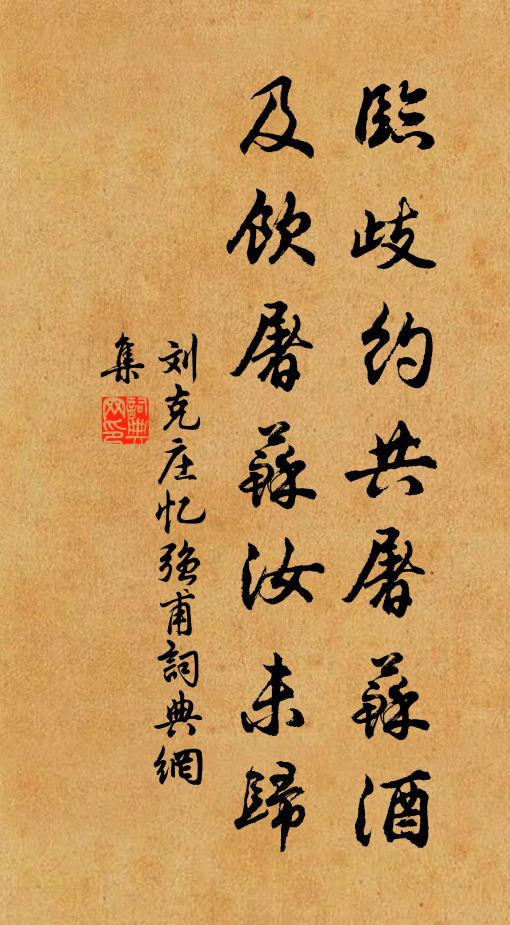 臨歧約共屠蘇酒
及飲屠蘇汝未歸
刘克庄忆强甫詞典網
集
詞典
网印